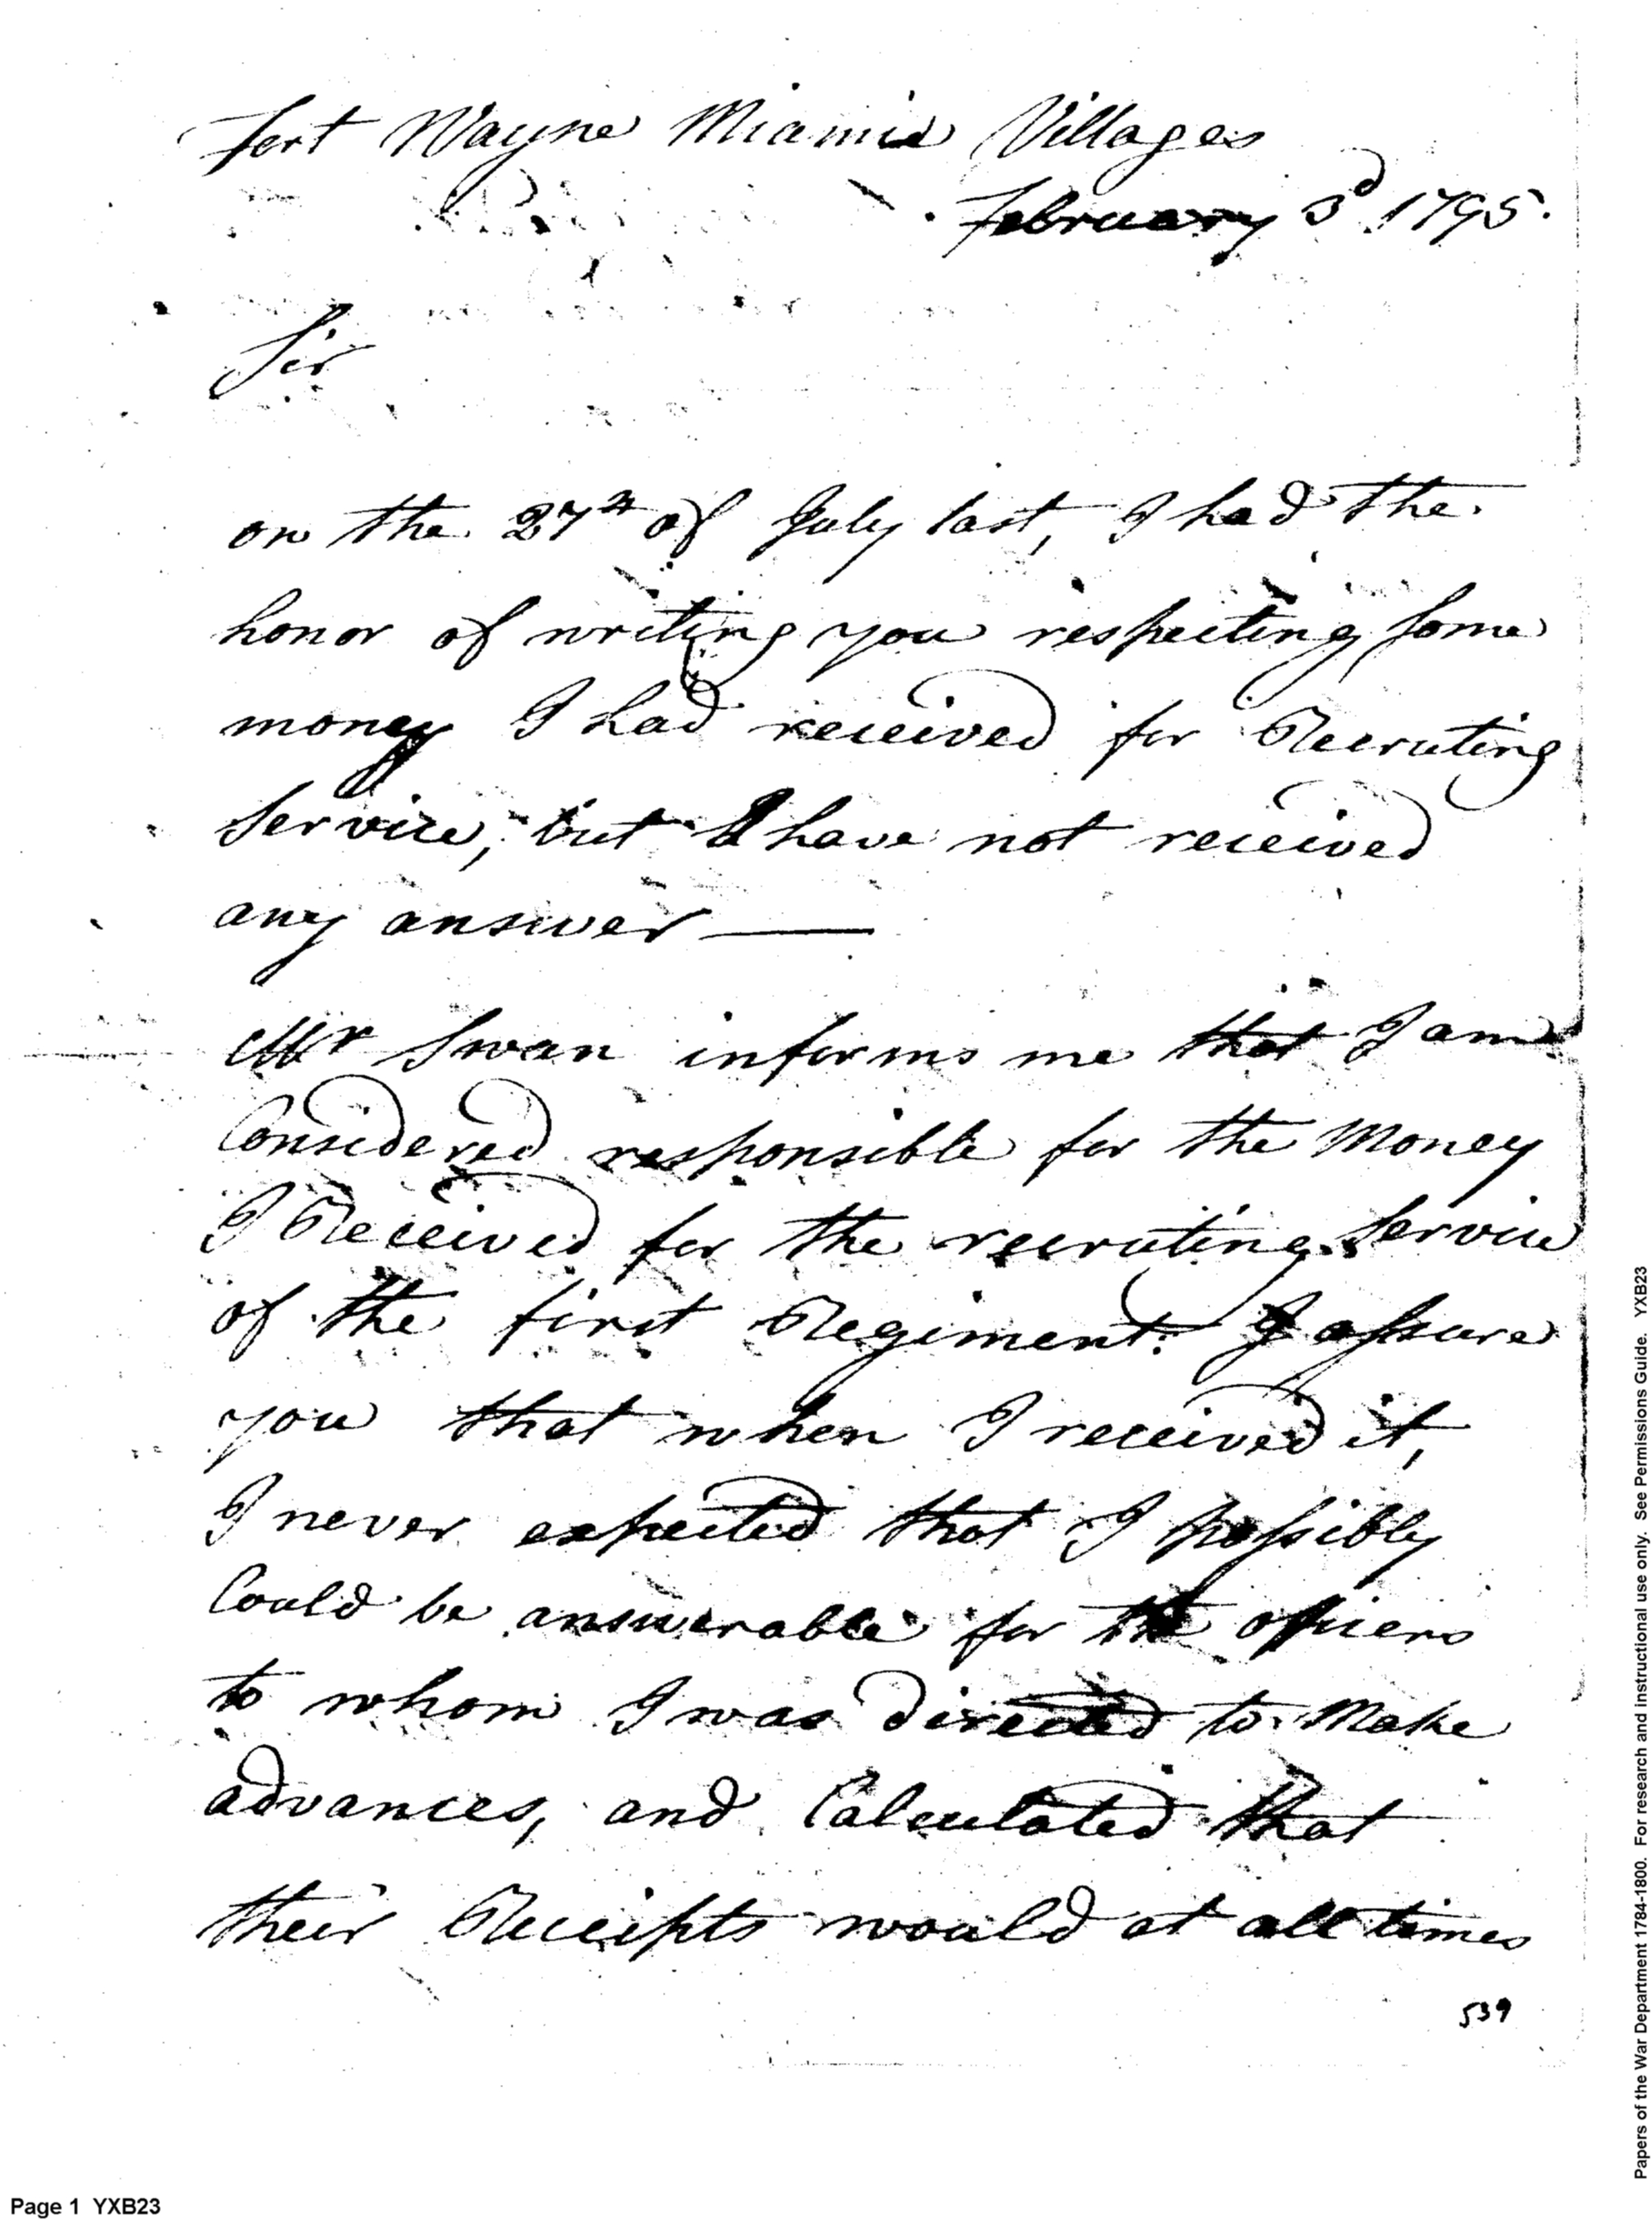 Fort Wayne Miamis Villages
February 3d 1795.
Sir
on the 27th of July last, I had the
honor of writing you respecting some
money I had received for Recruting
Service, but I have not received
any answer ——
Mr Swan informs me that I am
Considered responsible for the Money
I Received for the recruting Service
of the first Regiment. I assure
you that when I received it,
I never expected that I possibly
Could be answerable for the officers
to whom I was directed to Make
advances, and Calculated that
their Receipts would at all times
539
Page 1 YXB23
Papers of the War Department 1784-1800. For research and instructional use only. See Permissions Guide. YXB23